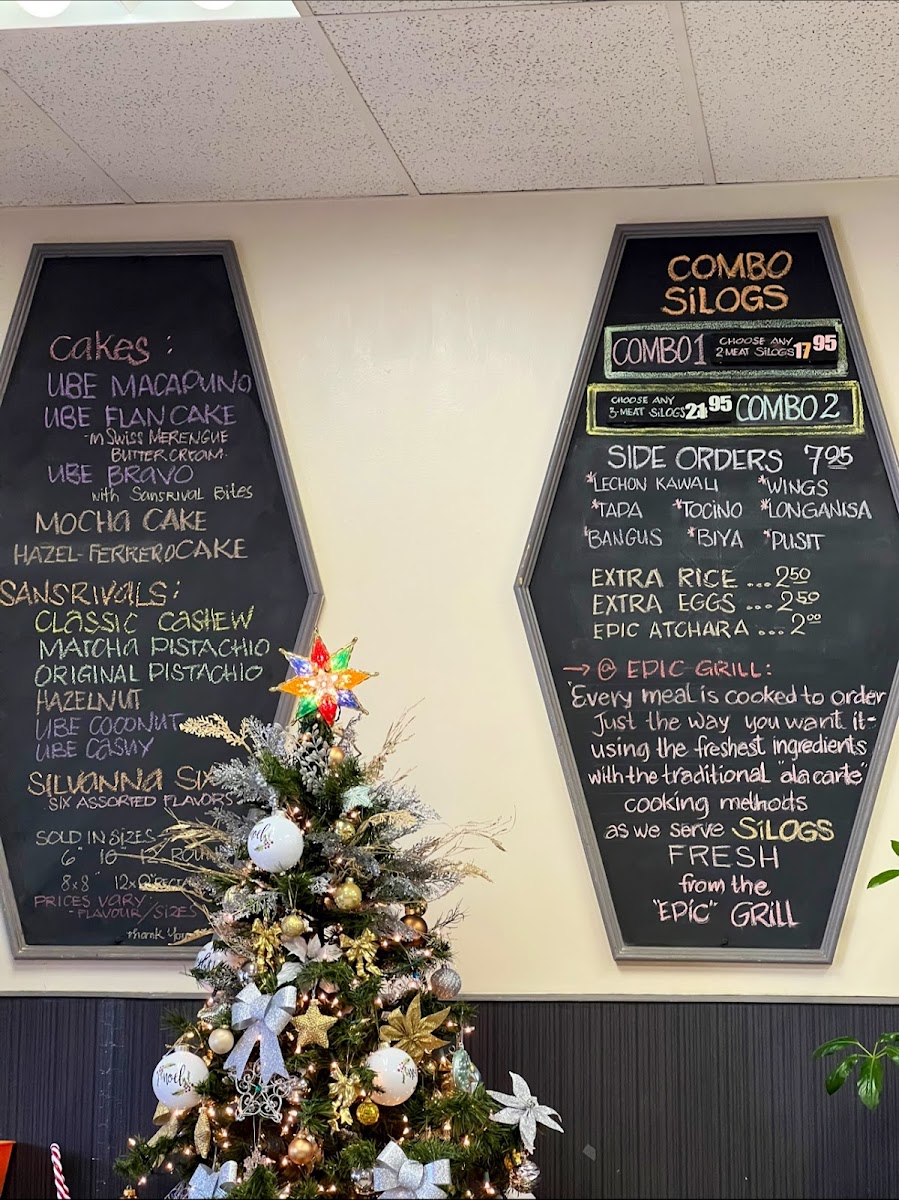 cakes :
UBE MACAPUNO
UBE FLAN CAKE
-in SWISS MERENGUE
BUTTER CREAM.
UBE BRAVO
with SANSRIVAL BITES
MOCHA CAKE
HAZEL-FERRERO CAKE
SANSRIVALS :
CLASSIC CASHEW
MATCHA PISTACHIO
ORIGINAL PISTACHIO
HAZELNUT
UBE COCONUT
UBE CASUY
SILVANNA SIX
SIX ASSORTED FLAVORS
SOLD IN SIZES
6" 10 12 ROUN
8x8" 12x
PRICES VARY:
-FLAVOUR/SIZES
thank you
COMBO
SiLOGS
COMBO 1 CHOOSE ANY
2-MEAT SiLOGS 17 95
CHOOSE ANY
3-MEAT SiLOGS 24 95 COMBO 2
SIDE ORDERS 7 95
*LECHON KAWALI *WINGS
*TAPA *TOCINO *LONGANISA
*BANGUS *BIYA *PUSIT
EXTRA RICE ... 2 50
EXTRA EGGS ... 2 50
EPIC ATCHARA ... 2 00
→ @ EPIC GRILL :
"Every meal is cooked to order
Just the way you want it-
using the freshest ingredients
with the traditional "ala carte"
cooking methods
as we serve SiLOGS
FRESH
from the
"EPIC" GRILL